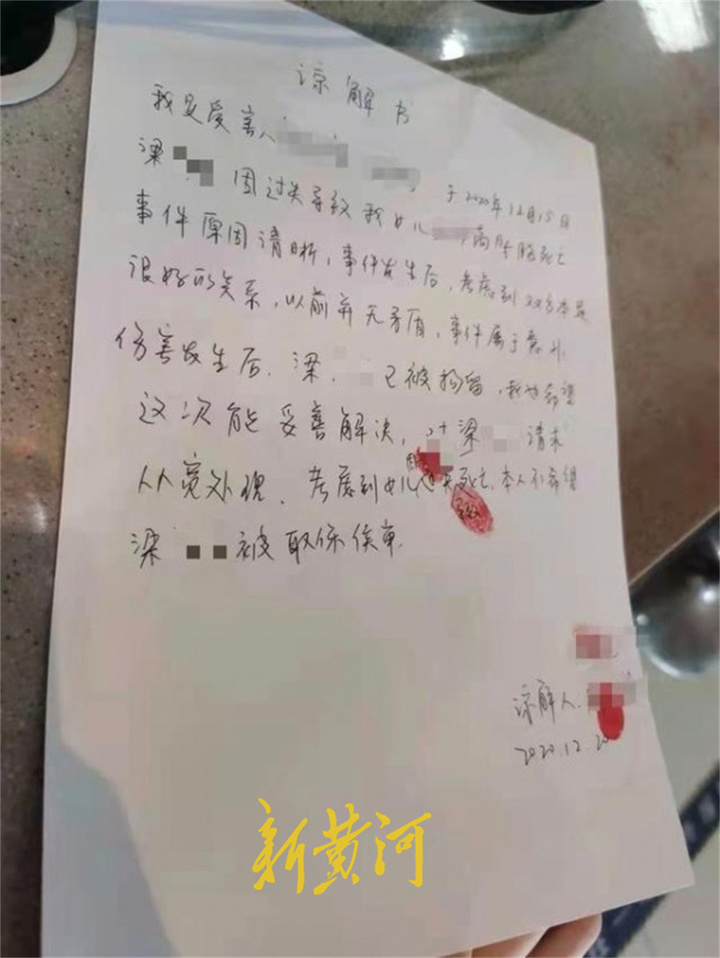 谅解书
我是受害人
梁 于2020年12月15日
因过失导致我女儿 死亡
事件原因清晰，事件发生后，考虑到双方本是
很好的关系，以前并无矛盾，事件属于意外
伤害发生后，梁 已被拘留，我 希望
这次能妥善解决，对梁 请求
从宽处理。考虑到女儿 死亡，本人不希望
梁 被取保候审
谅解人：
2020.12.20
新黄河